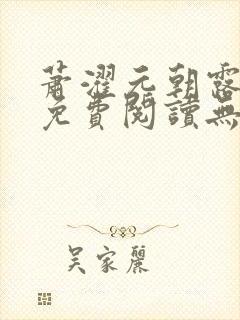 蕭濯元朝露
免費閱讀無
吳家麗